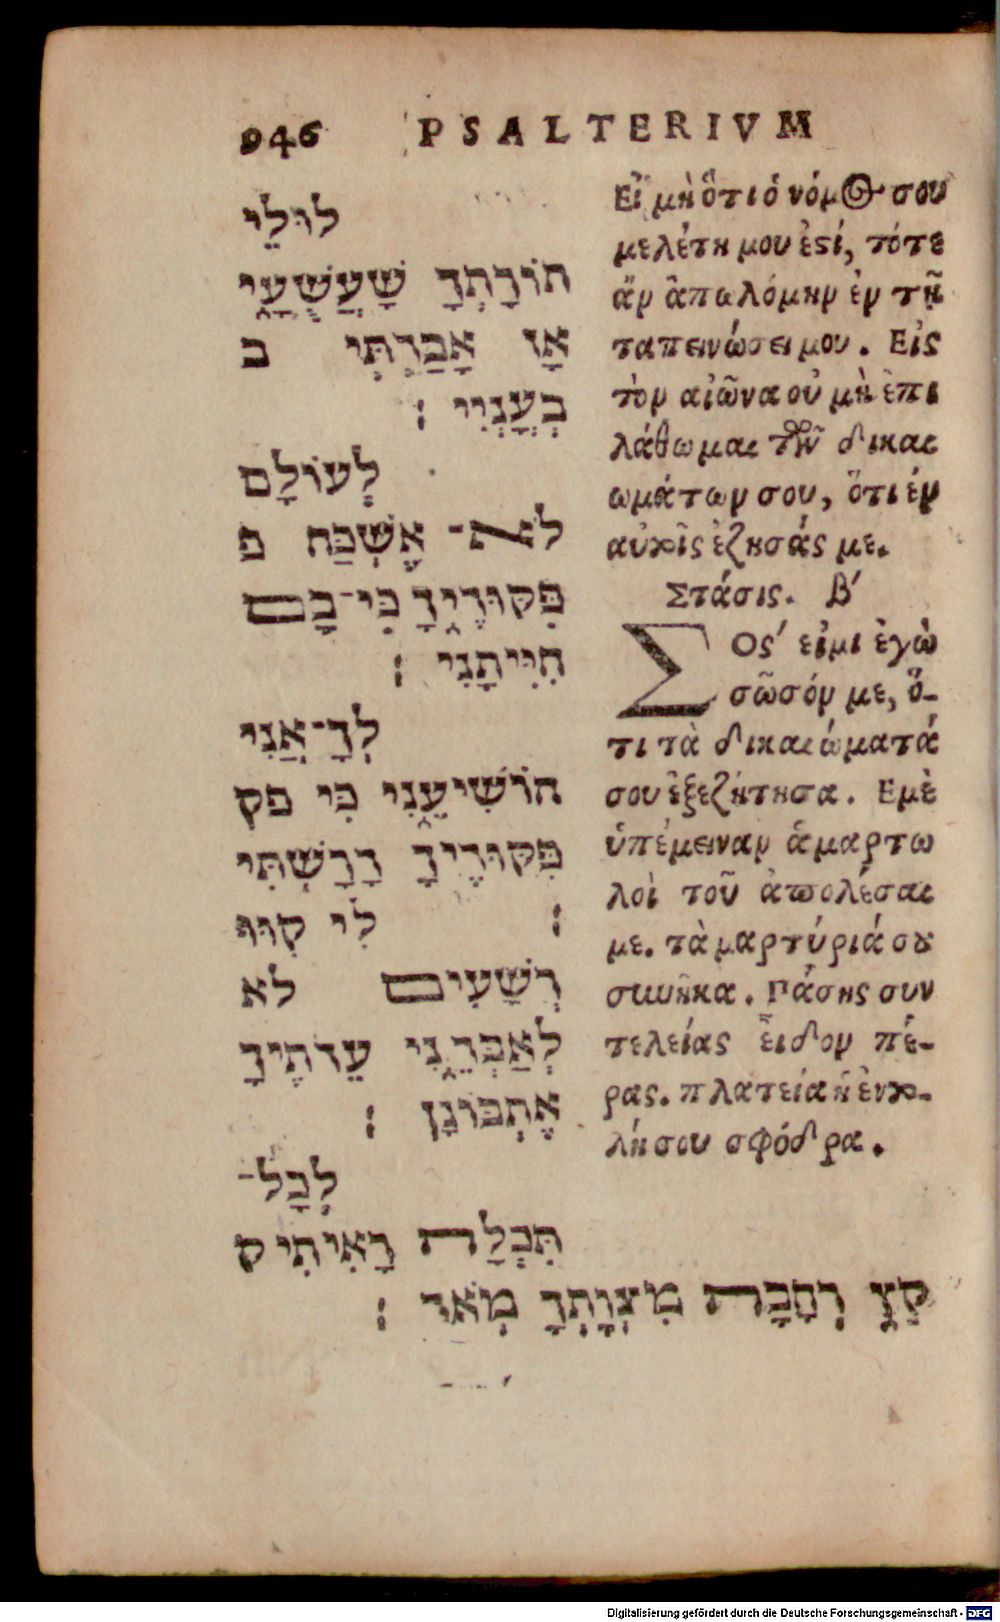 946 PSALTERIVM
לוּלֵי
תוֹרָתְךָ שַׁעֲשֻׁעָי
אָז אָבַדְתִּי ב
בְעָנְיִי ׃
לְעוֹלָם
לֹא־ אֶשְׁכַּח פ
פִּקּוּדֶיךָ כִּי־בָם
חִיִּיתָנִי ׃
לְךָ־אֲנִי
הוֹשִׁיעֵנִי כִּי פק
פִּקּוּדֶיךָ דָרָשְׁתִּי
׃ לִי קִוּוּ
רְשָׁעִים לא
לְאַבְּדֵנִי עֵדֹתֶיךָ
אֶתְבּוֹנָן ׃
לְכָל־
תִּכְלָה רָאִיתִי ק
קֵץ רְחָבָה מִצְוָתְךָ מְאֹד ׃
Εἰ μὴ ὅτι ὁ νόμος σου
μελέτη μου ἐστί, τότε
ἂν ἀπωλόμην ἐν τῇ
ταπεινώσει μου. Εἰς
τὸν αἰῶνα οὐ μὴ ἐπι
λάθωμαι τῶν δικαι
ωμάτων σου, ὅτι ἐν
αὐτοῖς ἔζησάς με.
Στάσις. β΄
Σός εἰμι ἐγὼ
σῶσόν με, ὅ-
τι τὰ δικαιώματά
σου ἐξεζήτησα. Εμὲ
ὑπέμειναν ἁμαρτω
λοὶ τοῦ ἀπολέσαι
με. τὰ μαρτύριά σου
συνῆκα. Πάσης συν
τελείας εἶδον πέ-
ρας. πλατεῖα ἡ ἐντο-
λή σου σφόδρα.
Digitalisierung gefördert durch die Deutsche Forschungsgemeinschaft - DFG